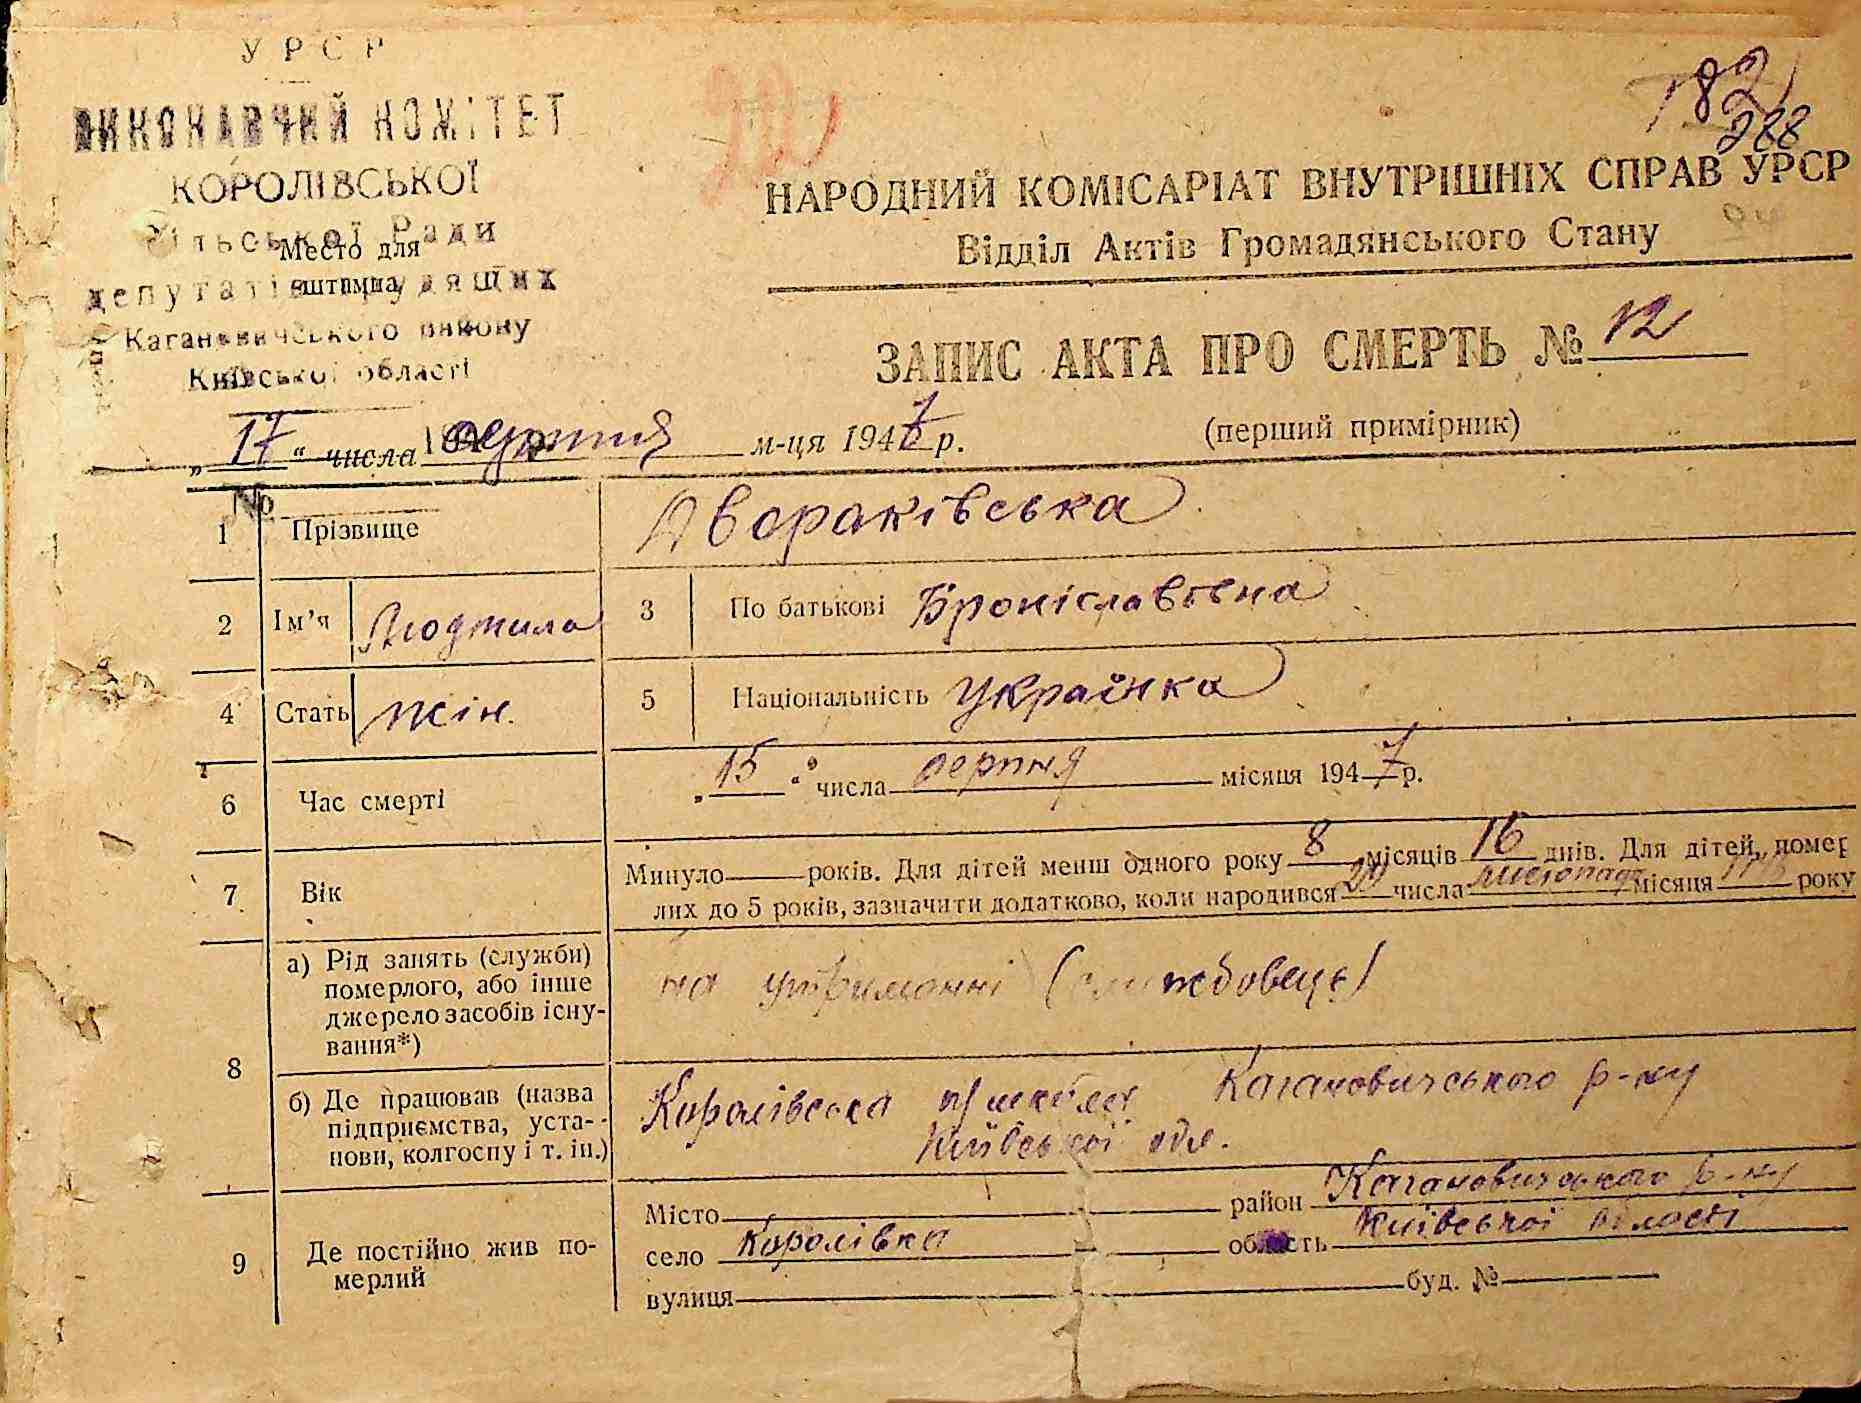 УРСР
ВИКОНАВЧИЙ КОМІТЕТ
КОРОЛІВСЬКОЇ
Сільської Ради
Место для
депутатів трудящих
штампа
Кагановичського району
Київської області
182
288
НАРОДНИЙ КОМІСАРІАТ ВНУТРІШНІХ СПРАВ УРСР
Відділ Актів Громадянського Стану
ЗАПИС АКТА ПРО СМЕРТЬ № 12
(перший примірник)
„17“ числа серпня м-ця 1947 р.
№
1 Прізвище Двораківська
2 Ім'я Людмила 3 По батькові Броніславівна
4 Стать жін. 5 Національність Українка
6 Час смерті „15“ числа серпня місяця 1947 р.
7 Вік Минуло років. Для дітей менш одного року 8 місяців 16 днів. Для дітей, помер
лих до 5 років, зазначити додатково, коли народився числа листопада місяця року
8 а) Рід занять (служби)
померлого, або інше
джерело засобів існу-
вання*)
на утриманні (службовець)
б) Де працював (назва
підприємства, уста-
нови, колгоспу і т. ін.)
Королівська Кагановичського р-ну
Київської обл.
9 Де постійно жив по-
мерлий
Місто район Кагановичського р-ну
село Королівка область Київської області
вулиця буд. №